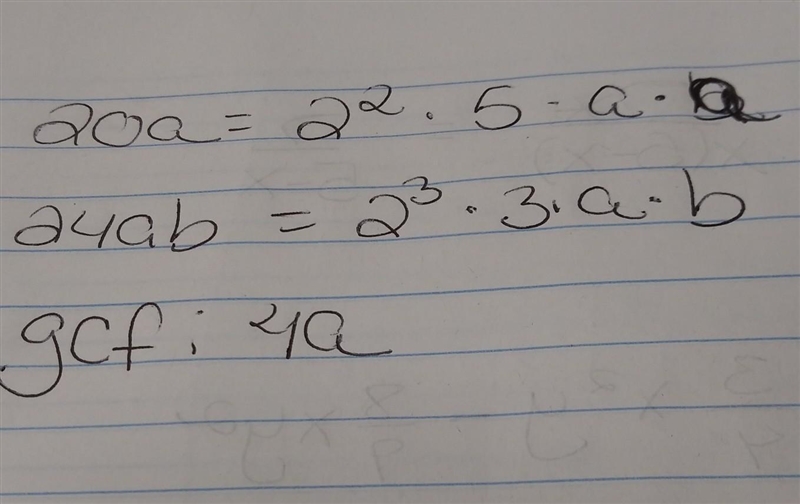 20a = 2² · 5 · a ·
24ab = 2³ · 3 · a · b
gcf: 4a